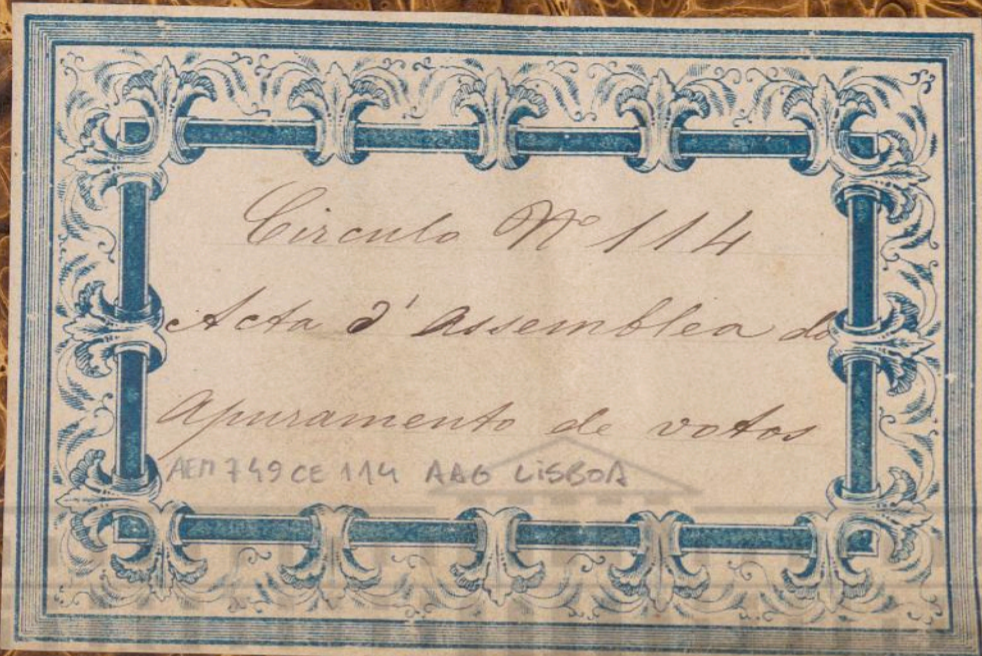 Circulo Nº 114
Acta d'assemblea do
apuramento de votos
AEM 749 CE 114 AAG LISBOA